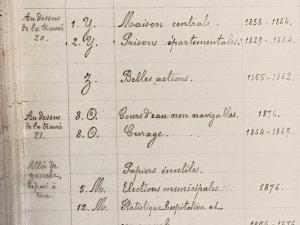 Au dessus 1. Y. Maison centrale. 1858-1884.
de la travée
20. 2. Y. Prisons départementales. 1829-1884.
Z. Belles actions. 1855-1882.
Au dessus 8. O. Cours d'eau non navigables. 1876.
de la travée
21. 8. O. Curage. 1864-1869.
Allée de Papiers inutiles.
gauche,
dépôt à 5. M. Elections municipales. 1876.
12. M. Statistique hospitalière et